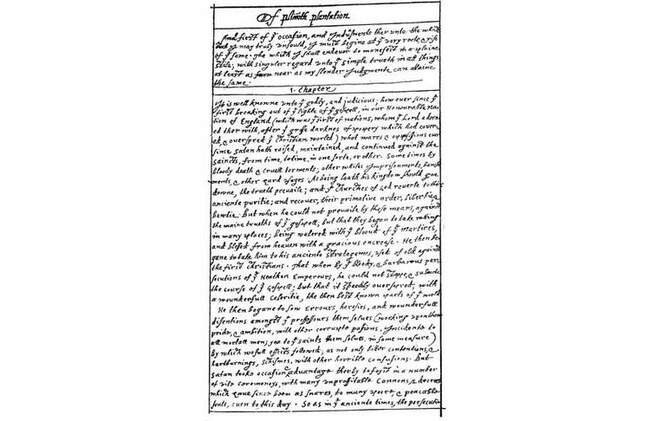 Of plimoth plantation.
And first of yᵉ occasion, and Indusments ther unto; the which
that I may truly unfould, I must begine at yᵉ very roote & rise
of yᵉ same. The which I shall endevor to manefest in a plaine
stile; with singuler regard unto yᵉ simple trueth in all things,
at least as farr near as my slender Judgmente can attaine
the same.
1. Chapter
It is well knowne unto yᵉ godly, and judicious; how ever since yᵉ
first breaking out of yᵉ lighte of yᵉ gospell, in our Honourable Na-
tion of England (which was yᵉ first of nations, whom yᵉ Lord adorn-
ed ther with, after yᵉ grosse darknes of popery which had cover-
ed, & overspred yᵉ Christian world) what warrs, & oppissions ever
since Satan hath raised, maintained, and continued against the
saincts, from time, to time, in one sorte, or other. Some times by
bloody death & cruell torments; other whiles Imprisonments, banish-
ments, & other hard usages. As being loath his kingdom should goe
downe, the trueth prevaile; and yᵉ Churches of God reverte to their
anciente puritie; and recover, their primative order, libertie, &
bewtie. But when he could not prevaile by these means, against
the maine trueths of yᵉ gospell; but that they began to take rooting
in many places; being watered with yᵉ bloud of yᵉ martires,
and blessed from heaven with a gracious encrease. He then be-
gane to take him to his anciente strategemes, used of old against
the first Christians. That when by yᵉ bloody, & barbarous per-
secutions of yᵉ Heathen Emperours, he could not stoppe, & subverte
the course of yᵉ gospell; but that it speedily overspred, with
a wounderfull celeritie, the then best known parts of yᵉ world.
He then begane to sow errours, heresies, and wounderfull
disentions amongst yᵉ professours them selves (working upon their
pride, & ambition, with other corrupte passions, Incidente to
all mortall men; yea to yᵉ saints them selves, in some measure)
by which wofull effects followed; as not only bitter contentions, &
hartburnings, schismes, with other horrible confusions. But
Satan tooke occasion & advantage therby to foyst in a number
of vile ceremoneys, with many unprofitable Cannons, & decrees
which have since been as snares, to many poore, & peaceable
souls, even to this day. So as in yᵉ anciente times, the persecutio